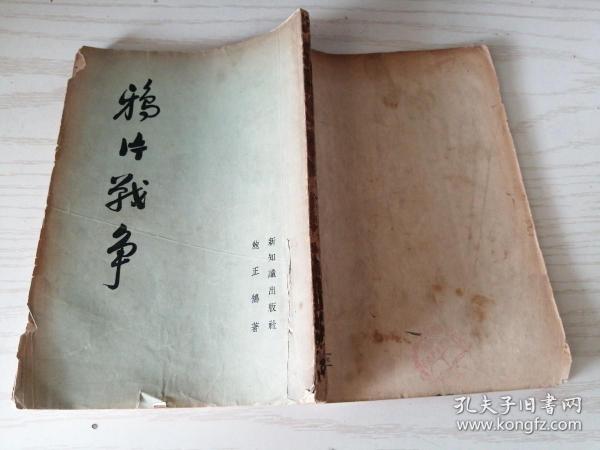 鴉片戰争
鮑正鵠著
新知識出版社
孔夫子旧書网
www.kongfz.com